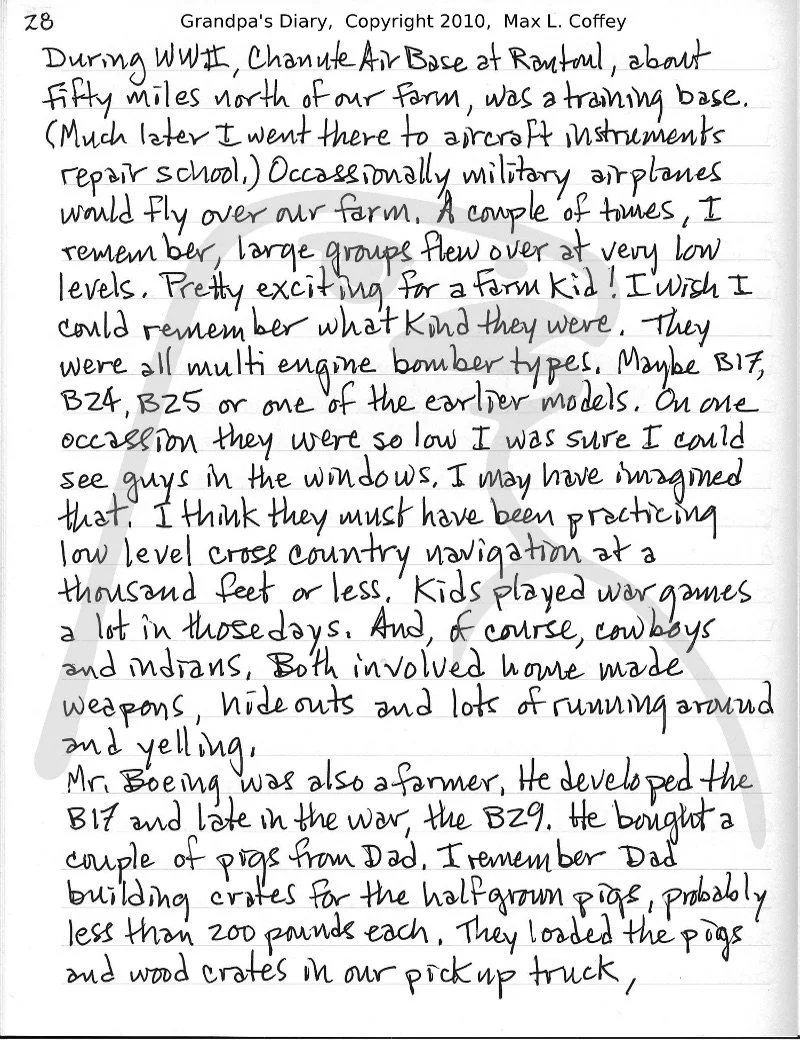 28
Grandpa's Diary, Copyright 2010, Max L. Coffey
During WWII, Chanute Air Base at Rantoul, about
fifty miles north of our farm, was a training base.
(Much later I went there to aircraft instruments
repair school.) Occassionally military airplanes
would fly over our farm. A couple of times, I
remember, large groups flew over at very low
levels. Pretty exciting for a farm kid! I wish I
could remember what kind they were. They
were all multi engine bomber types. Maybe B17,
B24, B25 or one of the earlier models. On one
occassion they were so low I was sure I could
see guys in the windows. I may have imagined
that. I think they must have been practicing
low level cross country navigation at a
thousand feet or less. Kids played war games
a lot in those days. And, of course, cowboys
and indians. Both involved home made
weapons, hide outs and lots of running around
and yelling.
Mr. Boeing was also a farmer. He developed the
B17 and late in the war, the B29. He bought a
couple of pigs from Dad. I remember Dad
building crates for the half grown pigs, probably
less than 200 pounds each. They loaded the pigs
and wood crates in our pick up truck,